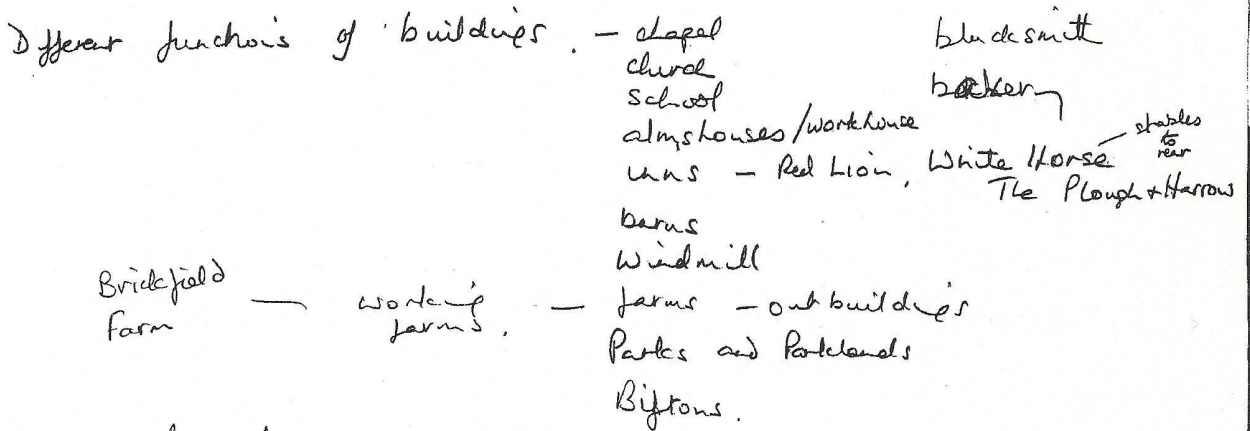 Different functions of buildings. – chapel
church
school
almshouses/workhouse
inns – Red Lion, White Horse – stables to rear
The Plough & Harrow
barns
Windmill
Brickfield Farm — working farms. — farms – outbuildings
Parks and Parklands
Biftons.
blacksmith
bakery